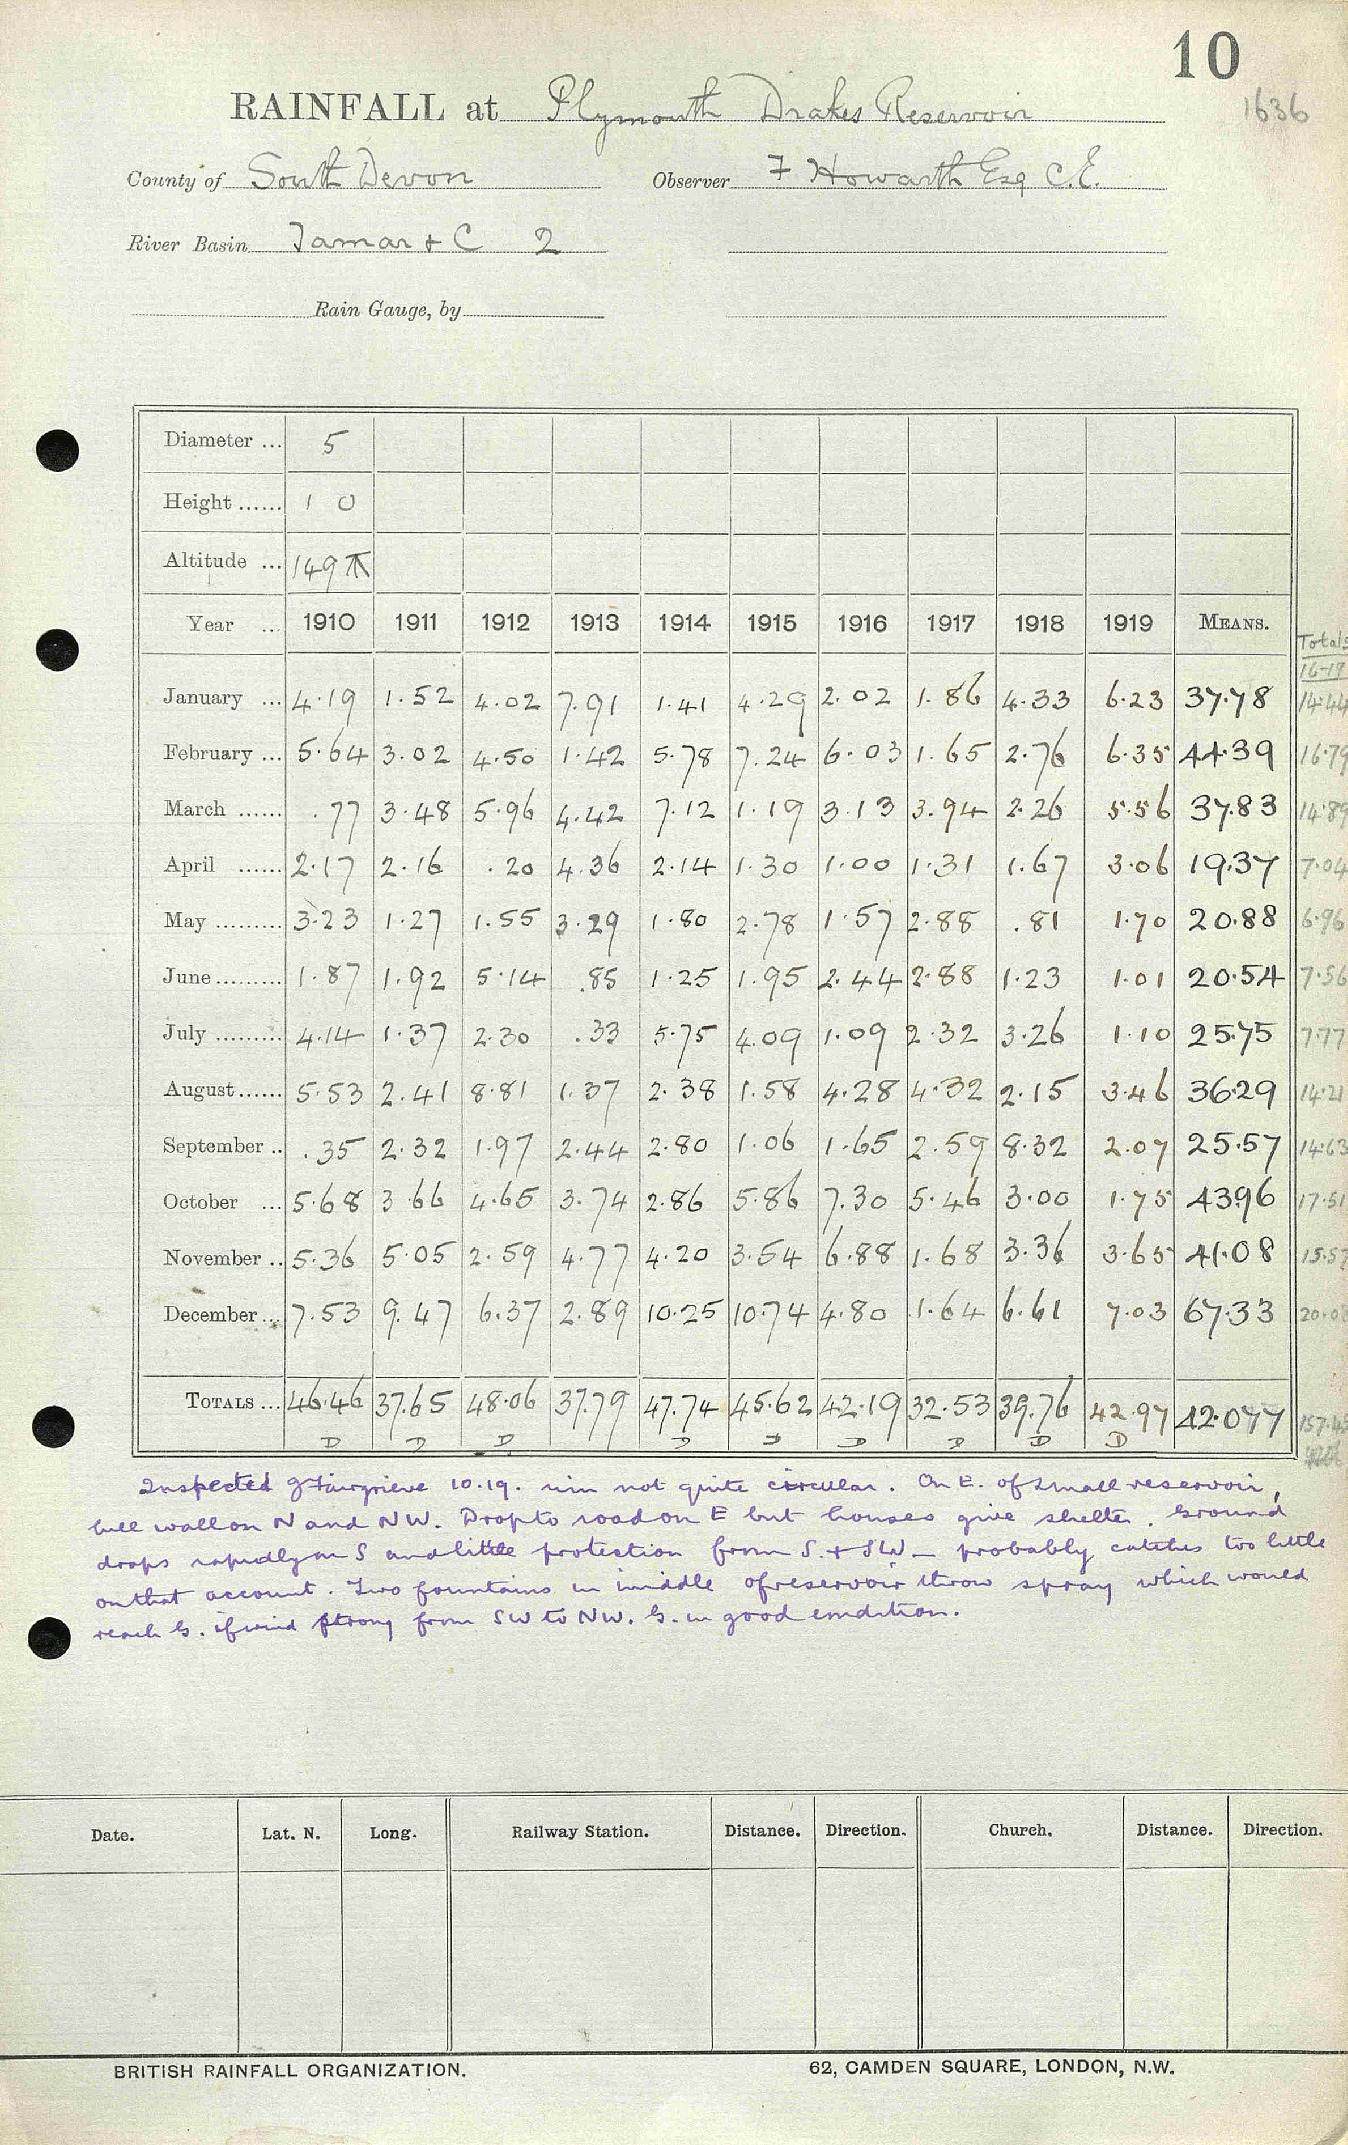 10
RAINFALL at Plymouth Drakes Reservoir 1636
County of South Devon Observer F Howarth Esq C.E.
River Basin Tamar & C 2
Rain Gauge, by
Diameter ... 5
Height ...... 1 0
Altitude ... 149
Year ... 1910 1911 1912 1913 1914 1915 1916 1917 1918 1919 MEANS. Totals 16-19
January ... 4.19 1.52 4.02 7.91 1.41 4.29 2.02 1.86 4.33 6.23 37.78 14.44
February ... 5.64 3.02 4.50 1.42 5.78 7.24 6.03 1.65 2.76 6.35 44.39 16.79
March ...... .77 3.48 5.96 4.42 7.12 1.19 3.13 3.94 2.26 5.56 37.83 14.89
April ...... 2.17 2.16 .20 4.36 2.14 1.30 1.00 1.31 1.67 3.06 19.37 7.04
May ......... 3.23 1.27 1.55 3.29 1.80 2.78 1.57 2.88 .81 1.70 20.88 6.96
June ......... 1.87 1.92 5.14 .85 1.25 1.95 2.44 2.88 1.23 1.01 20.54 7.56
July ......... 4.14 1.37 2.30 .33 5.75 4.09 1.09 2.32 3.26 1.10 25.75 7.77
August ...... 5.53 2.41 8.81 1.37 2.38 1.58 4.28 4.32 2.15 3.46 36.29 14.21
September .. .35 2.32 1.97 2.44 2.80 1.06 1.65 2.59 8.32 2.07 25.57 14.63
October ... 5.68 3 66 4.65 3.74 2.86 5.86 7.30 5.46 3.00 1.75 43.96 17.51
November .. 5.36 5.05 2.59 4.77 4.20 3.54 6.88 1.68 3.36 3.65 41.08 15.57
December ... 7.53 9.47 6.37 2.89 10.25 10.74 4.80 1.64 6.61 7.03 67.33 20.08
TOTALS ... 46.46 37.65 48.06 37.79 47.74 45.62 42.19 32.53 39.76 42.97 42.077
D D D D D D D D D
Inspected G Fairgrieve 10.19. rim not quite circular. On E. of small reservoir,
wall on N and NW. Drop to road on E but houses give shelter. Ground
drops rapidly on S and little protection from S. + SW – probably catches too little
on that account. Two fountains in middle of reservoir throw spray which would
reach G. if wind strong from SW to NW. G. in good condition.
Date. Lat. N. Long. Railway Station. Distance. Direction. Church. Distance. Direction.
BRITISH RAINFALL ORGANIZATION. 62, CAMDEN SQUARE, LONDON, N.W.